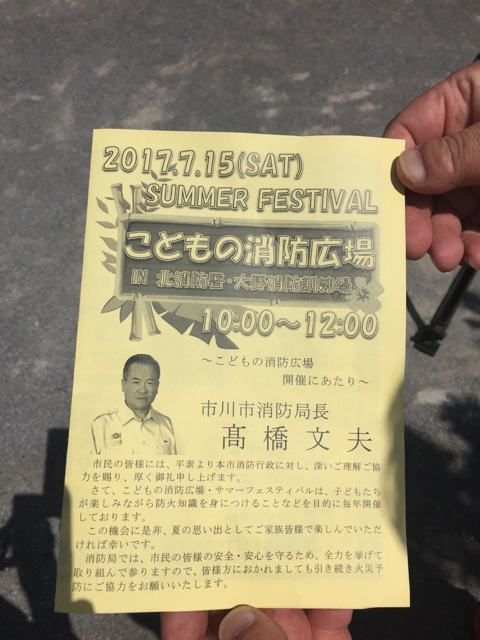 2017.7.15(SAT)
SUMMER FESTIVAL
こどもの消防広場
IN 北消防署・大野消防訓練場
10:00～12:00
～こどもの消防広場
開催にあたり～
市川市消防局長
髙橋文夫
市民の皆様には、平素より本市消防行政に対し、深いご理解ご協
力を賜り、厚く御礼申し上げます。
さて、こどもの消防広場・サマーフェスティバルは、子どもたち
が楽しみながら防火知識を身につけることなどを目的に毎年開催
しております。
この機会に是非、夏の思い出としてご家族皆様で楽しんでいただ
ければ幸いです。
消防局では、市民の皆様の安全・安心を守るため、全力を挙げて
取り組んで参りますので、皆様方におかれましても引き続き火災予
防にご協力をお願いいたします。